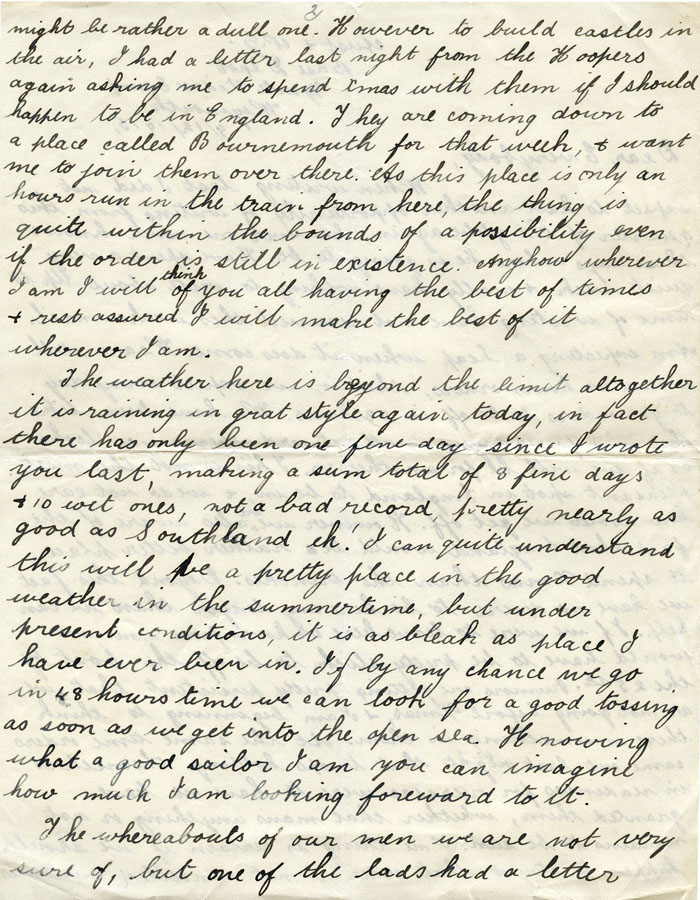 2
might be rather a dull one. However to build castles in
the air, I had a letter last night from the Hoopers
again asking me to spend Xmas with them if I should
happen to be in England. They are coming down to
a place called Bournemouth for that week, & want
me to join them over there. As this place is only an
hours run in the train from here, the thing is
quite within the bounds of a possibility even
if the order is still in existence. Anyhow wherever
think
I am I will of you all having the best of times
& rest assured I will make the best of it
wherever I am.
The weather here is beyond the limit altogether
it is raining in grat style again today, in fact
there has only been one fine day since I wrote
you last, making a sum total of 3 fine days
& 10 wet ones, not a bad record pretty nearly as
good as Southland eh! I can quite understand
this will be a pretty place in the good
weather in the summertime, but under
present conditions, it is as bleak as place I
have ever been in. If by any chance we go
in 48 hours time we can look for a good tossing
as soon as we get into the open sea. Knowing
what a good sailor I am you can imagine
how much I am looking foreward to it.
The whereabouts of our men we are not very
sure of, but one of the lads had a letter